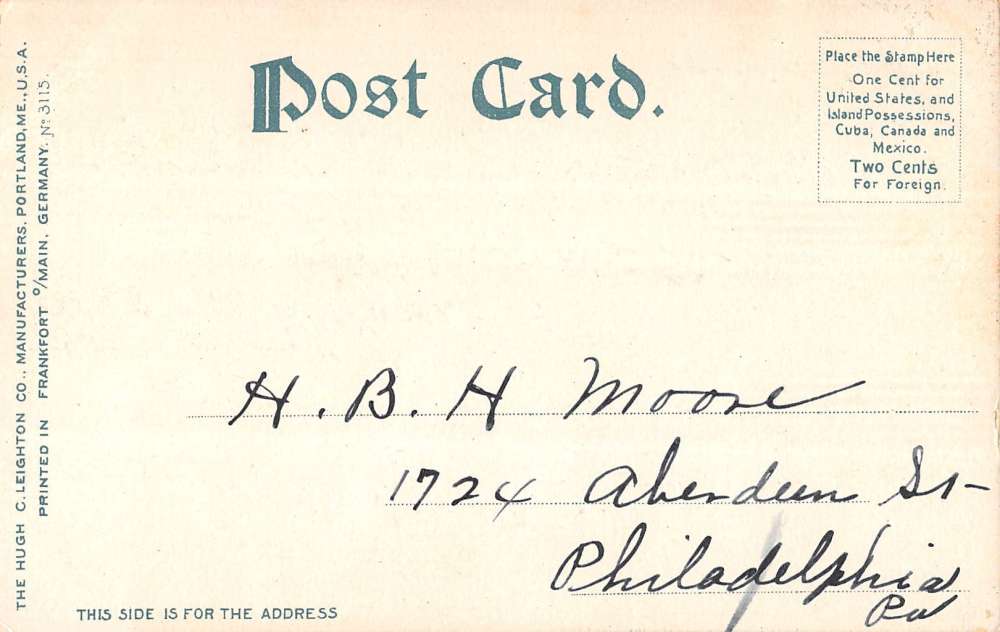 Post Card.
Place the Stamp Here
One Cent for
United States, and
Island Possessions,
Cuba, Canada and
Mexico.
Two Cents
For Foreign.
THE HUGH C. LEIGHTON CO., MANUFACTURERS, PORTLAND, ME., U.S.A.
PRINTED IN FRANKFORT O/MAIN, GERMANY. No 3115.
H. B. H Moore
1724 Aberdeen St-
Philadelphia
Pa
THIS SIDE IS FOR THE ADDRESS